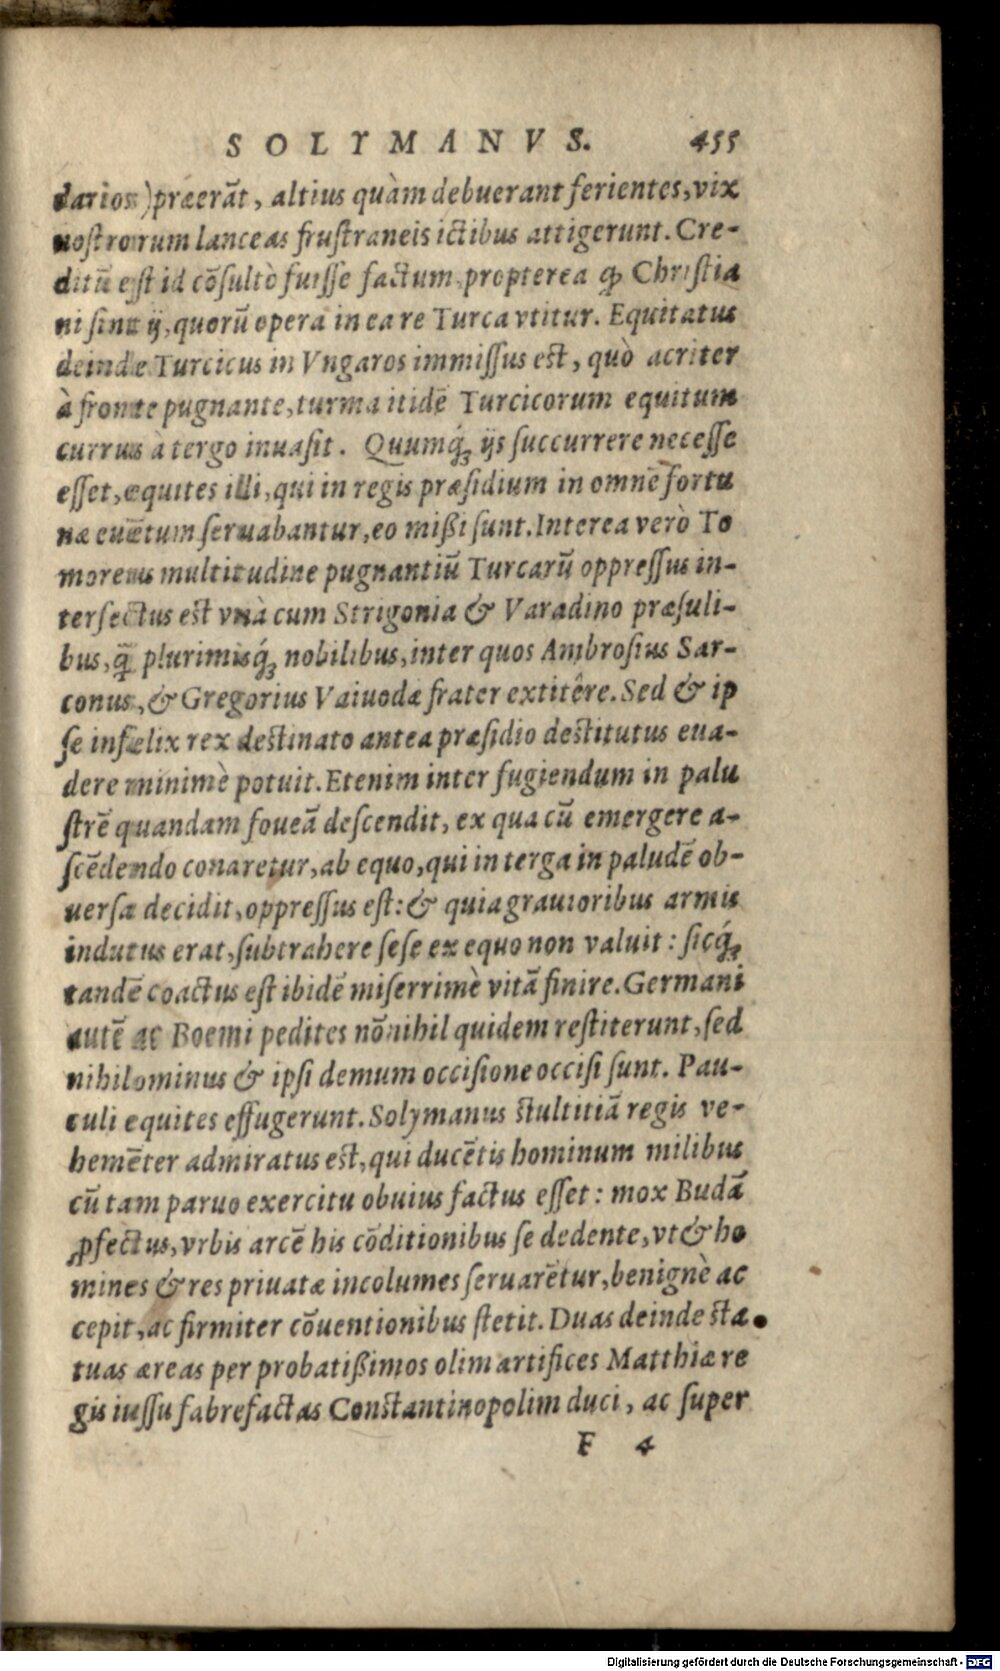 SOLYMANVS. 455
darios) præerãt, altius quàm debuerant ferientes, vix
nostrorum lanceas frustraneis ictibus attigerunt. Cre-
ditũ est id cõsultò fuisse factum, propterea ꝙ Christia
ni sint ij, quorũ opera in ea re Turca vtitur. Equitatus
deinde Turcicus in Vngaros immissus est, quò acriter
à fronte pugnante, turma itidẽ Turcicorum equitum
currus à tergo inuasit. Quumq́ꝫ ijs succurrere necesse
esset, equites illi, qui in regis præsidium in omnẽ fortu
næ euẽtum seruabantur, eo mißi sunt. Interea verò To
moreus multitudine pugnantiũ Turcarũ oppressus in-
terfectus est vnà cum Strigonia & Varadino præsuli-
bus, q̃ plurimisq́ꝫ nobilibus, inter quos Ambrosius Sar-
conus, & Gregorius Vaiuodæ frater extitêre. Sed & ip
se infœlix rex destinato antea præsidio destitutus eua-
dere minimè potuit. Etenim inter fugiendum in palu
strẽ quandam foueã descendit, ex qua cũ emergere a-
scẽdendo conaretur, ab equo, qui in terga in paludẽ ob-
uersa decidit, oppressus est: & quia grauioribus armis
indutus erat, subtrahere sese ex equo non valuit: sicq́ꝫ
tandẽ coactus est ibidẽ miserrimè vitã finire. Germani
autẽ ac Boemi pedites nõnihil quidem restiterunt, sed
nihilominus & ipsi demum occisione occisi sunt. Pau-
culi equites effugerunt. Solymanus stultitiã regis ve-
hemẽter admiratus est, qui ducẽtis hominum milibus
cũ tam paruo exercitu obuius factus esset: mox Budã
ꝓfectus, vrbis arcẽ his cõditionibus se dedente, vt & ho
mines & res priuatæ incolumes seruarẽtur, benignè ac
cepit, ac firmiter cõuentionibus stetit. Duas deinde sta
tuas æreas per probatißimos olim artifices Matthiæ re
gis iussu fabrefactas Constantinopolim duci, ac super
F 4
Digitalisierung gefördert durch die Deutsche Forschungsgemeinschaft - DFG